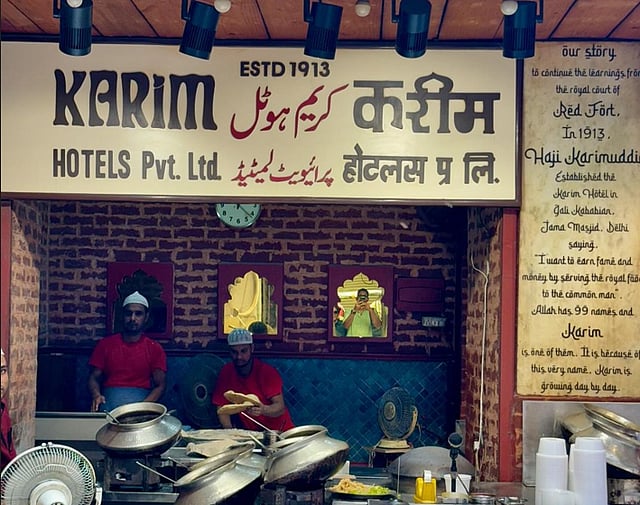 ESTD 1913
KARIM کریم ہوٹل करीम
HOTELS Pvt. Ltd. پرائیویٹ لمیٹیڈ होटलस प्र लि.
our story
to continue the learnings from
the royal court of
Red Fort,
In 1913,
Haji Karimuddin
Established the
Karim Hotel in
Gali Kababian,
Jama Masjid, Delhi
saying,
"I want to earn fame and
money by serving the royal food
to the common man".
Allah has 99 names and
Karim
is one of them. It is because of
this very name, Karim is
growing day by day.